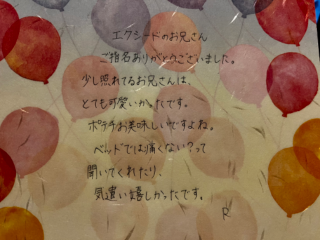 エクシードのお兄さん
ご指名ありがとうございました。
少し照れてるお兄さんは、
とても可愛いかったです。
ポテチお美味しいですよね。
ベッドでは痛くない？って
聞いてくれたり、
気遣い嬉しかったです。
R